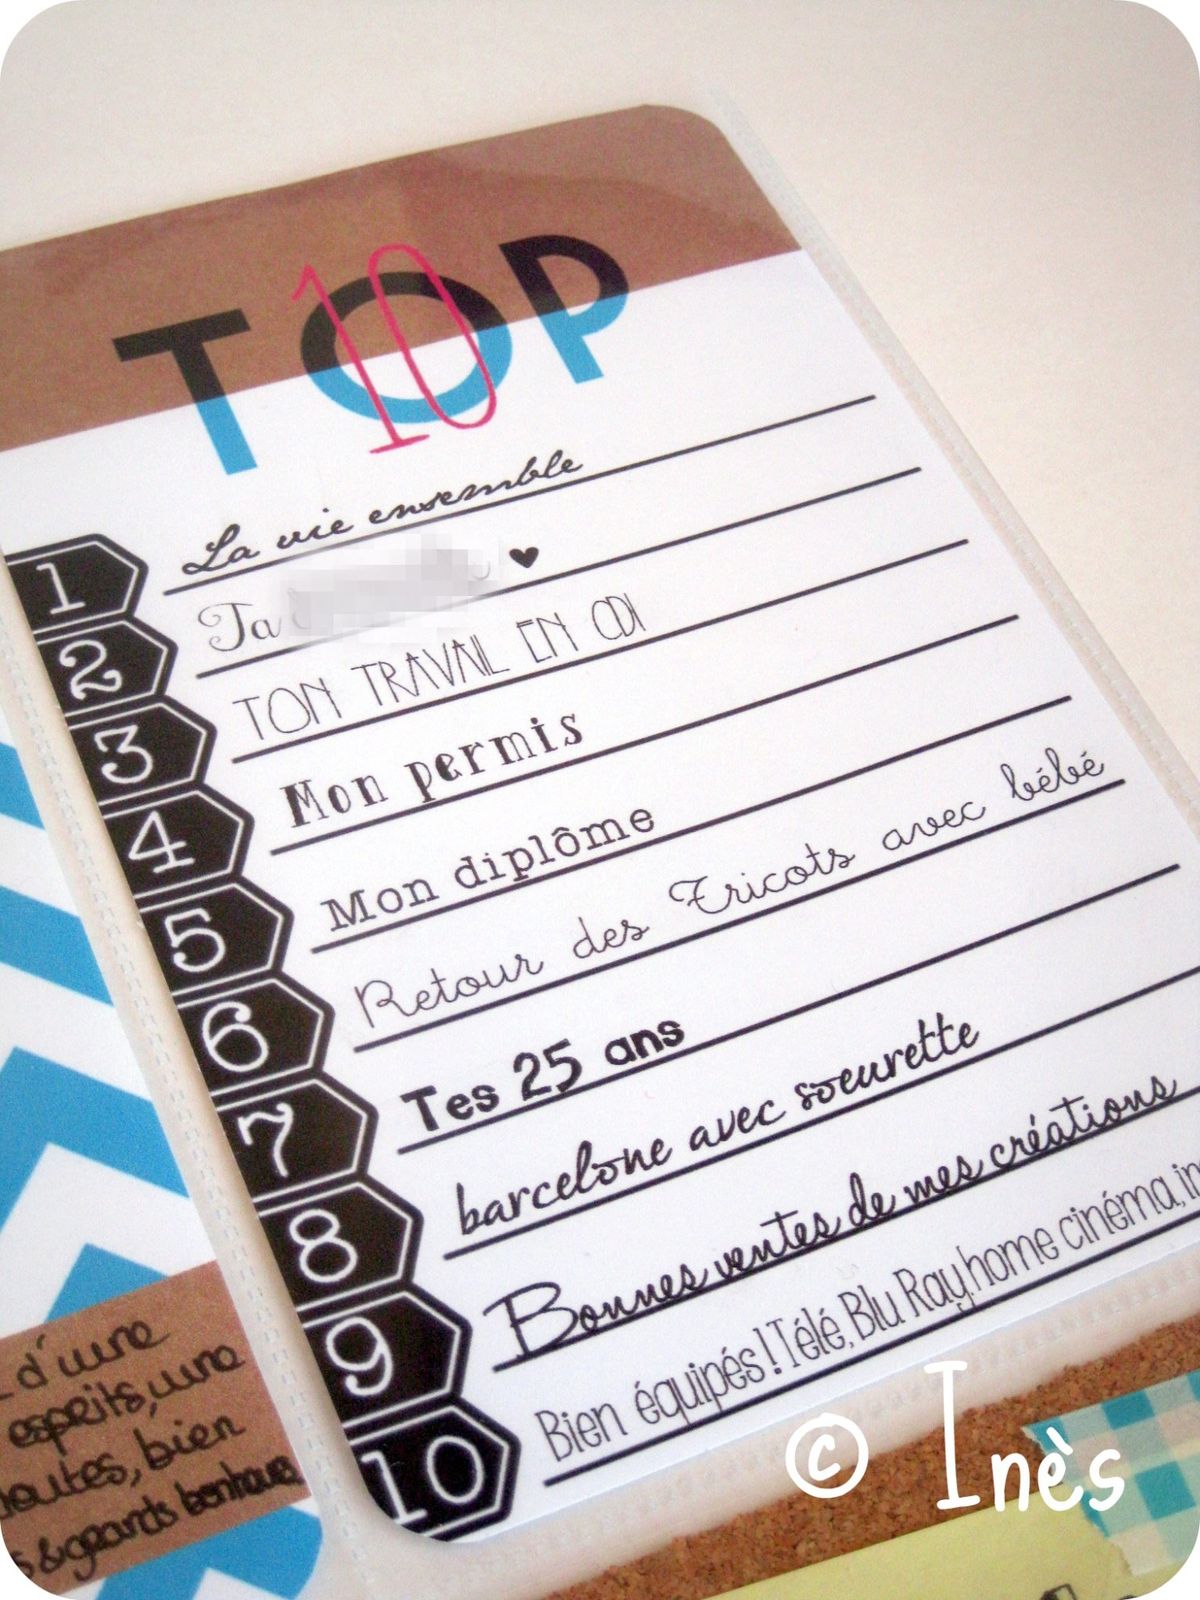 TOP
10
1 La vie ensemble
2 Ta ♥
3 TON TRAVAIL EN CDI
4 Mon permis
5 Mon diplôme
6 Retour des Tricots avec bébé
7 Tes 25 ans
8 barcelone avec soeurette
9 Bonnes ventes de mes créations
10 Bien équipés ! Télé, Blu Ray, home cinéma,
d'une
esprits, une
bien
& grands bonheurs
© Inès